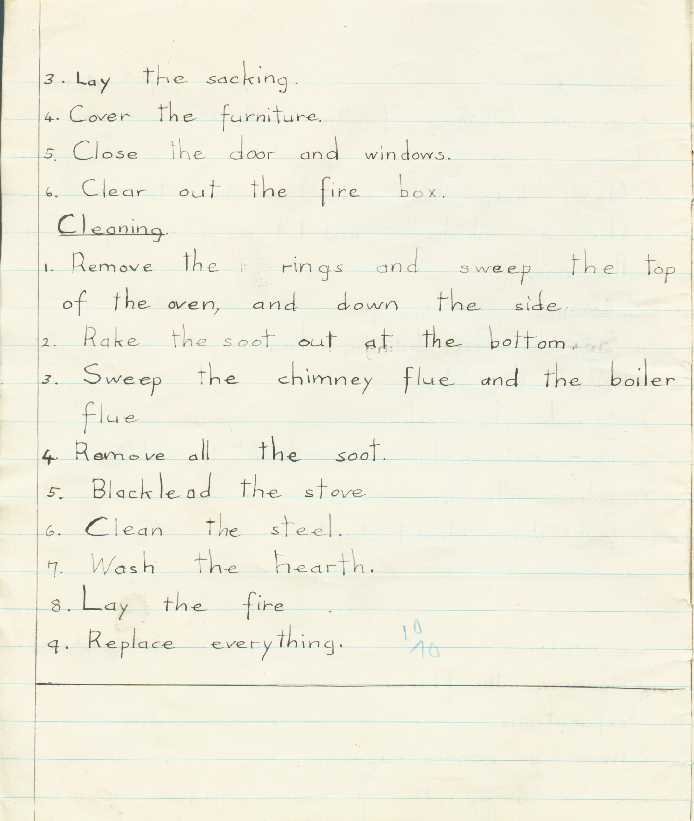 3. Lay the sacking.
4. Cover the furniture.
5. Close the door and windows.
6. Clear out the fire box.
Cleaning.
1. Remove the rings and sweep the top
of the oven, and down the side.
2. Rake the soot out at the bottom.
3. Sweep the chimney flue and the boiler
flue
4. Remove all the soot.
5. Blacklead the stove
6. Clean the steel.
7. Wash the hearth.
8. Lay the fire .
9. Replace everything.
10
10